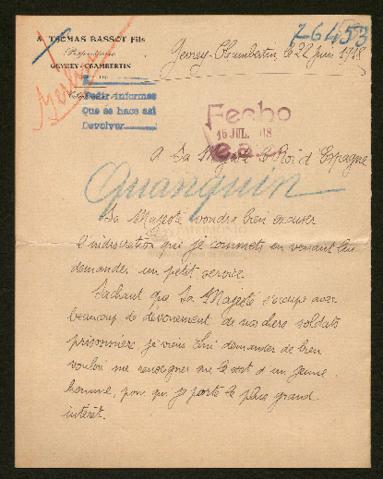 A. THOMAS BASSOT Fils
GEVREY-CHAMBERTIN
76453
Gevrey-Chambertin, le 22 Juin 1918
Berlin
Pedir informes
Que se hace asi
Devolver
Fecho
16 JUL. 918
A Sa Majesté le Roi d'Espagne
Quanquin
Sa Majesté voudra bien excuser
l'indiscrétion que je commets en venant lui
demander un petit service
Sachant que Sa Majesté s'occupe avec
beaucoup de dévouement de nos chers soldats
prisonniers je viens lui demander de bien
vouloir me renseigner sur le sort d'un jeune
homme, pour qui je porte le plus grand
intérêt.